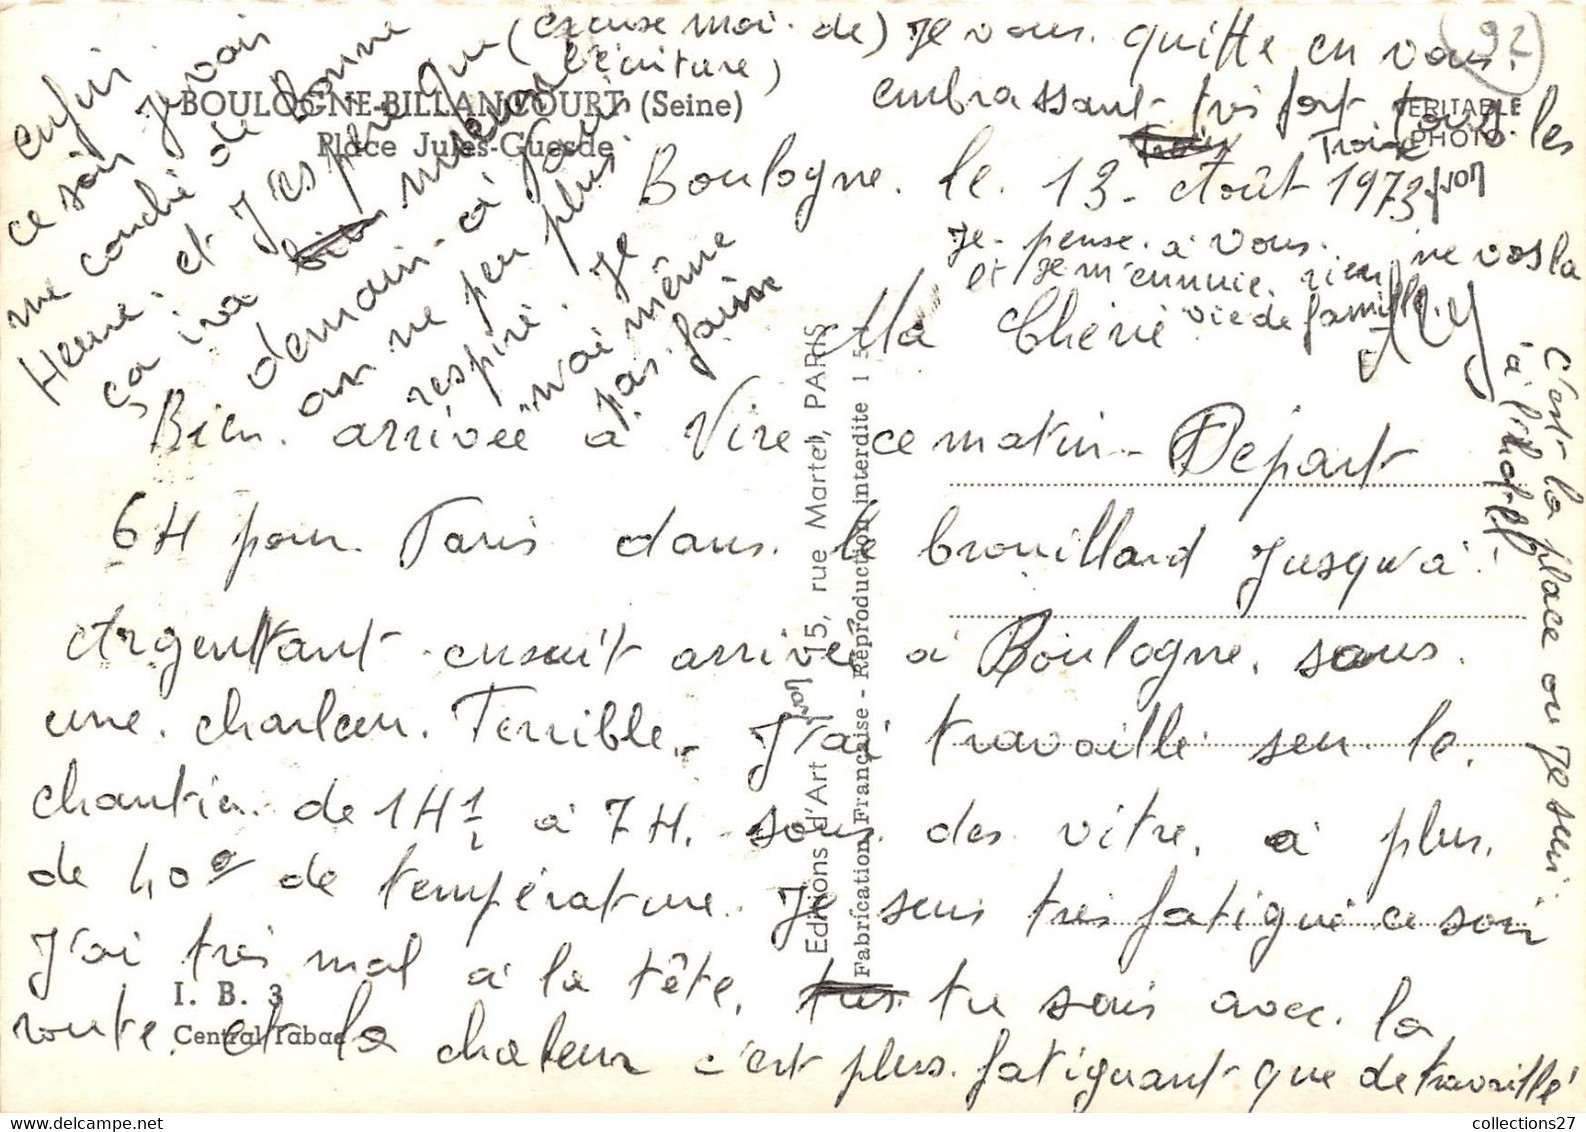 BOULOGNE-BILLANCOURT (Seine)
Place Jules-Guesde
VERITABLE
PHOTO
92
Boulogne. le. 13. Août 1973
Je. pense. à vous.
et Je m'ennuie. rien ne vos la
vie de famille.
Ma Chérie
Bien. arrivée à Vire ce matin - Départ
6H pour. Paris dans. le brouillard Jusqu'a.
Argentant ensuit arrivée à Boulogne. sous.
une. chaleur. Terrible. - J'ai travaillé seur le.
chantier. de 1H 1/2 à 7H. sous. des vitre. a plus.
de 40° de température. Je suis très fatigué ce soir
J'ai très mal à la tête. très tu sais avec. la
route. et la chaleur c'est plus. fatiguant que de travaillé
enfin
ce soir Je vais
me couché de Bonne
Heure. et J'espère que
ça ira bien mieux
demain. à Paris
on ne peu plus
respiré. Je
n'vai même
pas. faim
(excuse moi. de)
l'écriture)
Je vous. quitte en vous.
embrassant très fort tous les
Trois Trois
C'est la place ou Je suis.
à l'hotel
I. B. 3
Central Tabac
Editions d'Art Yvon, 15, rue Martel, PARIS
Fabrication Française - Reproduction interdite 1 5